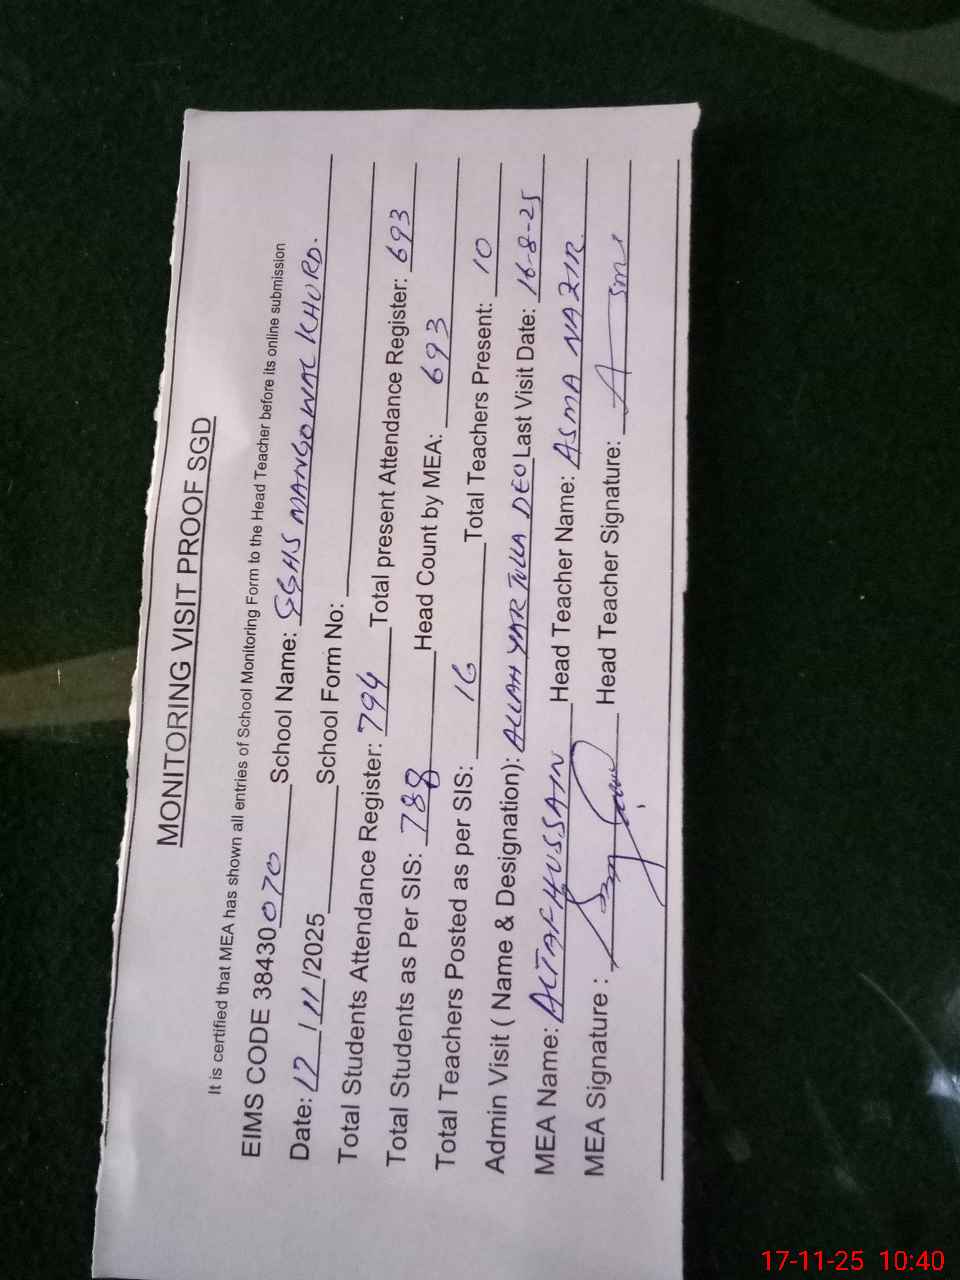 MONITORING VISIT PROOF SGD
It is certified that MEA has shown all entries of School Monitoring Form to the Head Teacher before its online submission
EIMS CODE 38430070 School Name: GGHS MANGOWAL KHURD.
Date: 17/11/2025 School Form No:
Total Students Attendance Register: 794 Total present Attendance Register: 693
Total Students as Per SIS: 788 Head Count by MEA: 693
Total Teachers Posted as per SIS: 16 Total Teachers Present: 10
Admin Visit ( Name & Designation): ALLAH YAR TULLA DEO Last Visit Date: 16-8-25
MEA Name: ALTAF HUSSAIN Head Teacher Name: ASMA NAZIR
MEA Signature : Head Teacher Signature: Asma
17-11-25 10:40